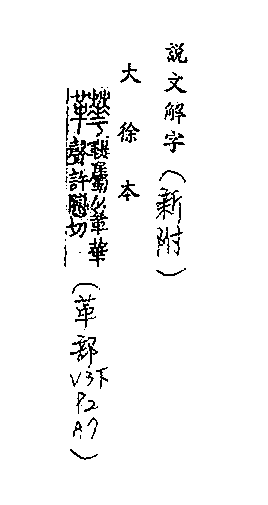 說文解字（新附）
大徐本
鞮屬从革華
聲許切（革部V3下P2A7）